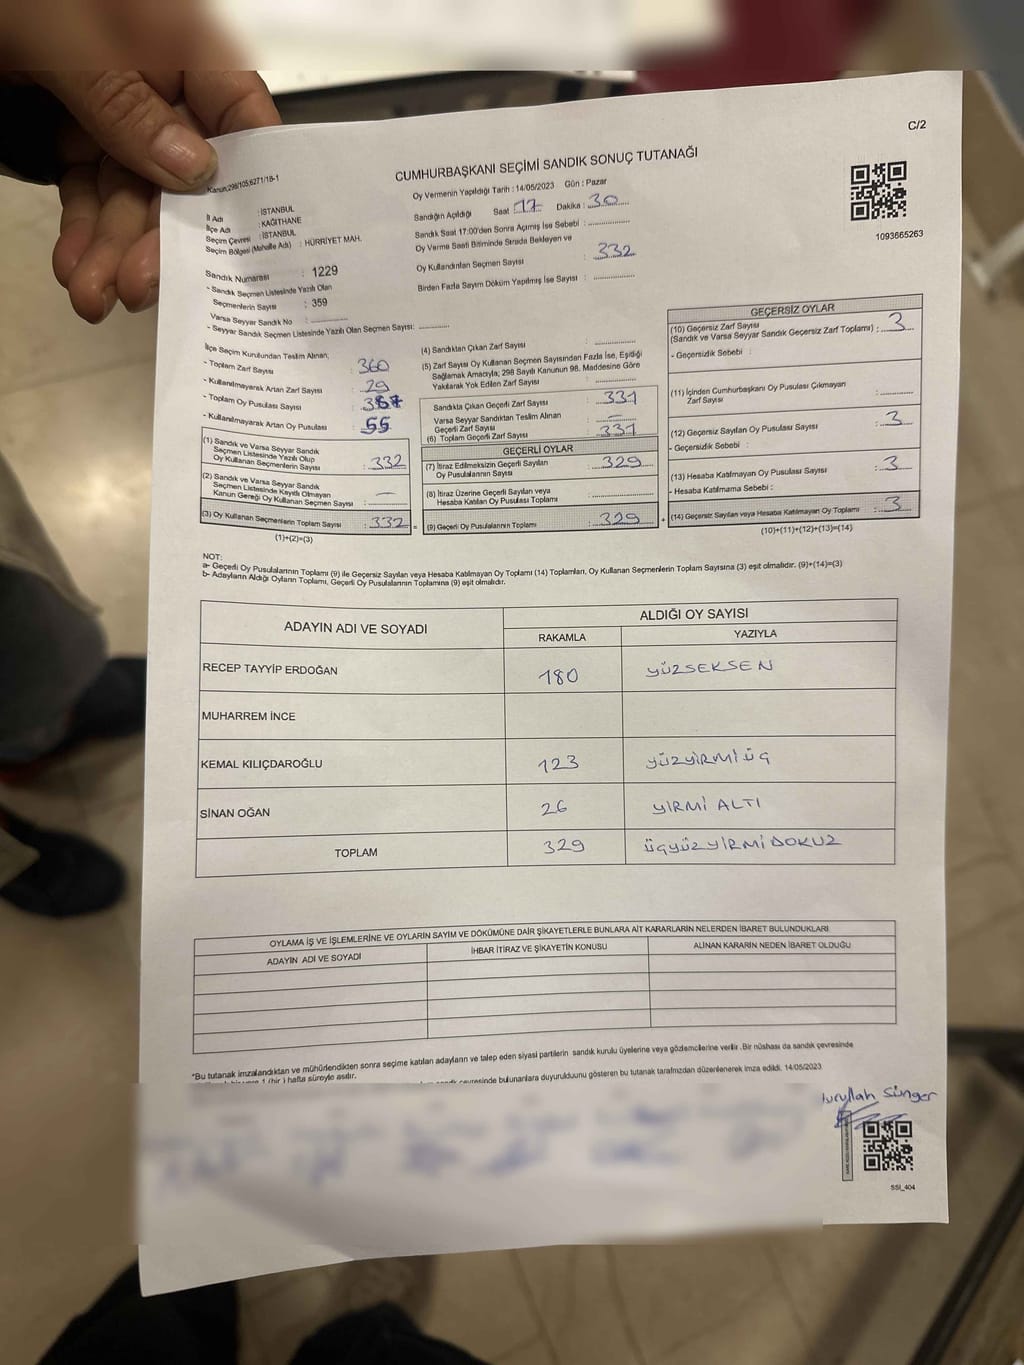 C/2
Kanun;298/105;6271/18-1
CUMHURBAŞKANI SEÇİMİ SANDIK SONUÇ TUTANAĞI
Oy Vermenin Yapıldığı Tarih : 14/05/2023 Gün : Pazar
1093665263
İl Adı : İSTANBUL
İlçe Adı : KAĞITHANE
Seçim Çevresi : İSTANBUL
Seçim Bölgesi (Mahalle Adı) : HÜRRİYET MAH.
Sandık Numarası : 1229
- Sandık Seçmen Listesinde Yazılı Olan
Seçmenlerin Sayısı : 359
Varsa Seyyar Sandık No :
- Seyyar Sandık Seçmen Listesinde Yazılı Olan Seçmen Sayısı:
Sandığın Açıldığı Saat : 17 Dakika : 30
Sandık Saat 17:00'den Sonra Açımış İse Sebebi :
Oy Verme Saati Bitiminde Sırada Bekleyen ve
Oy Kullandırılan Seçmen Sayısı : 332
Birden Fazla Sayım Döküm Yapılmış İse Sayısı :
İlçe Seçim Kurulundan Teslim Alınan;
- Toplam Zarf Sayısı : 360
- Kullanılmayarak Artan Zarf Sayısı : 29
- Toplam Oy Pusulası Sayısı :
- Kullanılmayarak Artan Oy Pusulası : 55
(1) Sandık ve Varsa Seyyar Sandık
Seçmen Listesinde Yazılı Olup
Oy Kullanan Seçmenlerin Sayısı : 332
(2) Sandık ve Varsa Seyyar Sandık
Seçmen Listesinde Kayıtlı Olmayan
Kanun Gereği Oy Kullanan Seçmen Sayısı : —
(3) Oy Kullanan Seçmenlerin Toplam Sayısı : 332 =
(1)+(2)=(3)
(4) Sandıktan Çıkan Zarf Sayısı :
(5) Zarf Sayısı Oy Kullanan Seçmen Sayısından Fazla İse, Eşitliği
Sağlamak Amacıyla; 298 Sayılı Kanunun 98. Maddesine Göre
Yakılarak Yok Edilen Zarf Sayısı :
Sandıkta Çıkan Geçerli Zarf Sayısı : 331
Varsa Seyyar Sandıktan Teslim Alınan
Geçerli Zarf Sayısı : —
(6) Toplam Geçerli Zarf Sayısı : 331
GEÇERLİ OYLAR
(7) İtiraz Edilmeksizin Geçerli Sayılan
Oy Pusulasının Sayısı : 329
(8) İtiraz Üzerine Geçerli Sayılan veya
Hesaba Katılan Oy Pusulası Toplamı :
(9) Geçerli Oy Pusulalarının Toplamı : 329 +
GEÇERSİZ OYLAR
(10) Geçersiz Zarf Sayısı
(Sandık ve Varsa Seyyar Sandık Geçersiz Zarf Toplamı) : 3
- Geçersizlik Sebebi :
(11) İçinden Cumhurbaşkanı Oy Pusulası Çıkmayan
Zarf Sayısı :
(12) Geçersiz Sayılan Oy Pusulası Sayısı : 3
- Geçersizlik Sebebi :
(13) Hesaba Katılmayan Oy Pusulası Sayısı : 3
- Hesaba Katılmama Sebebi :
(14) Geçersiz Sayılan veya Hesaba Katılmayan Oy Toplamı : 3
(10)+(11)+(12)+(13)=(14)
NOT:
a- Geçerli Oy Pusulalarının Toplamı (9) ile Geçersiz Sayılan veya Hesaba Katılmayan Oy Toplamı (14) Toplamları, Oy Kullanan Seçmenlerin Toplam Sayısına (3) eşit olmalıdır. (9)+(14)=(3)
b- Adayların Aldığı Oyların Toplamı, Geçerli Oy Pusulalarının Toplamına (9) eşit olmalıdır.
ADAYIN ADI VE SOYADI ALDIĞI OY SAYISI
RAKAMLA YAZIYLA
RECEP TAYYİP ERDOĞAN 180 YÜZSEKSEN
MUHARREM İNCE
KEMAL KILIÇDAROĞLU 123 YÜZYİRMİ ÜÇ
SİNAN OĞAN 26 YİRMİ ALTI
TOPLAM 329 ÜÇYÜZ YİRMİ DOKUZ
OYLAMA İŞ VE İŞLEMLERİNE VE OYLARIN SAYIM VE DÖKÜMÜNE DAİR ŞİKAYETLERLE BUNLARA AİT KARARLARIN NELERDEN İBARET BULUNDUKLARI
ADAYIN ADI VE SOYADI İHBAR İTİRAZ VE ŞİKAYETİN KONUSU ALINAN KARARIN NEDEN İBARET OLDUĞU
*Bu tutanak imzalandıktan ve mühürlendikten sonra seçime katılan adayların ve talep eden siyasi partilerin sandık kurulu üyelerine veya gözlemcilerine verilir .Bir nüshası da sandık çevresinde
1 (bir ) hafta süreyle asılır.
sandık çevresinde bulunanlara duyurulduunu gösteren bu tutanak tarafımızdan düzenlenerek imza edildi. 14/05/2023
Sünger
SSI_404